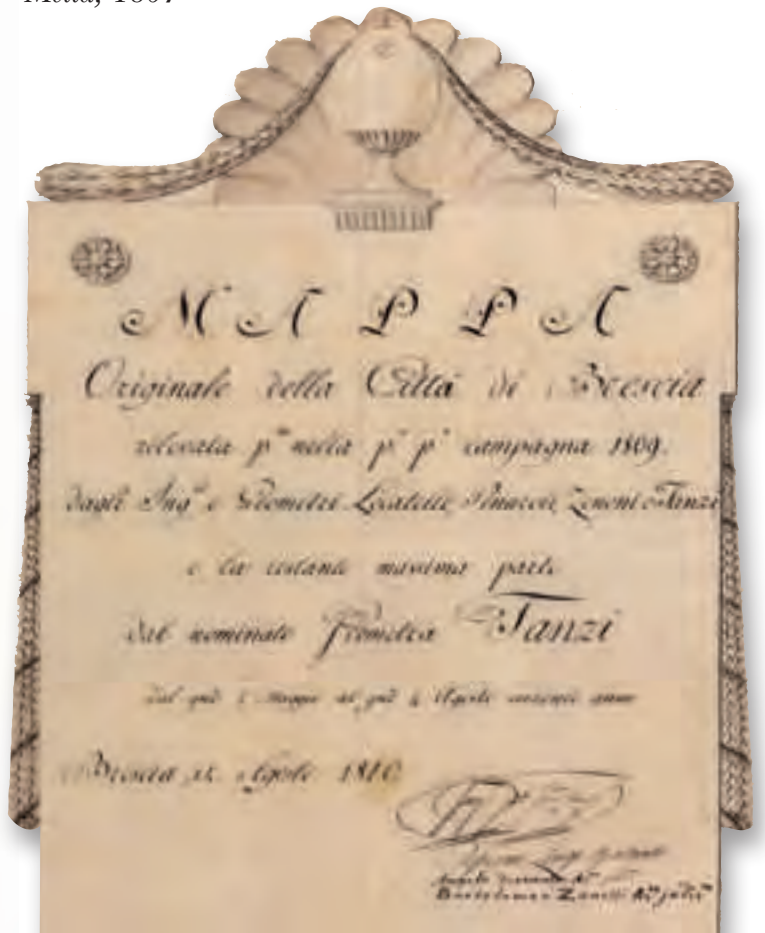 Mella, 1807
MAPPA
Originale della Città di Brescia
rilevata p.ma nella p.ma p.e campagna 1809.
dagli Ing.ri e Geometri Locatelli Pinaroli Zenoni e Tanzi
e la restante massima parte
dal nominato Geometra Tanzi
dal Maggio al Agosto corrente anno
Brescia Agosto 1810
Bartolomeo Zanetti